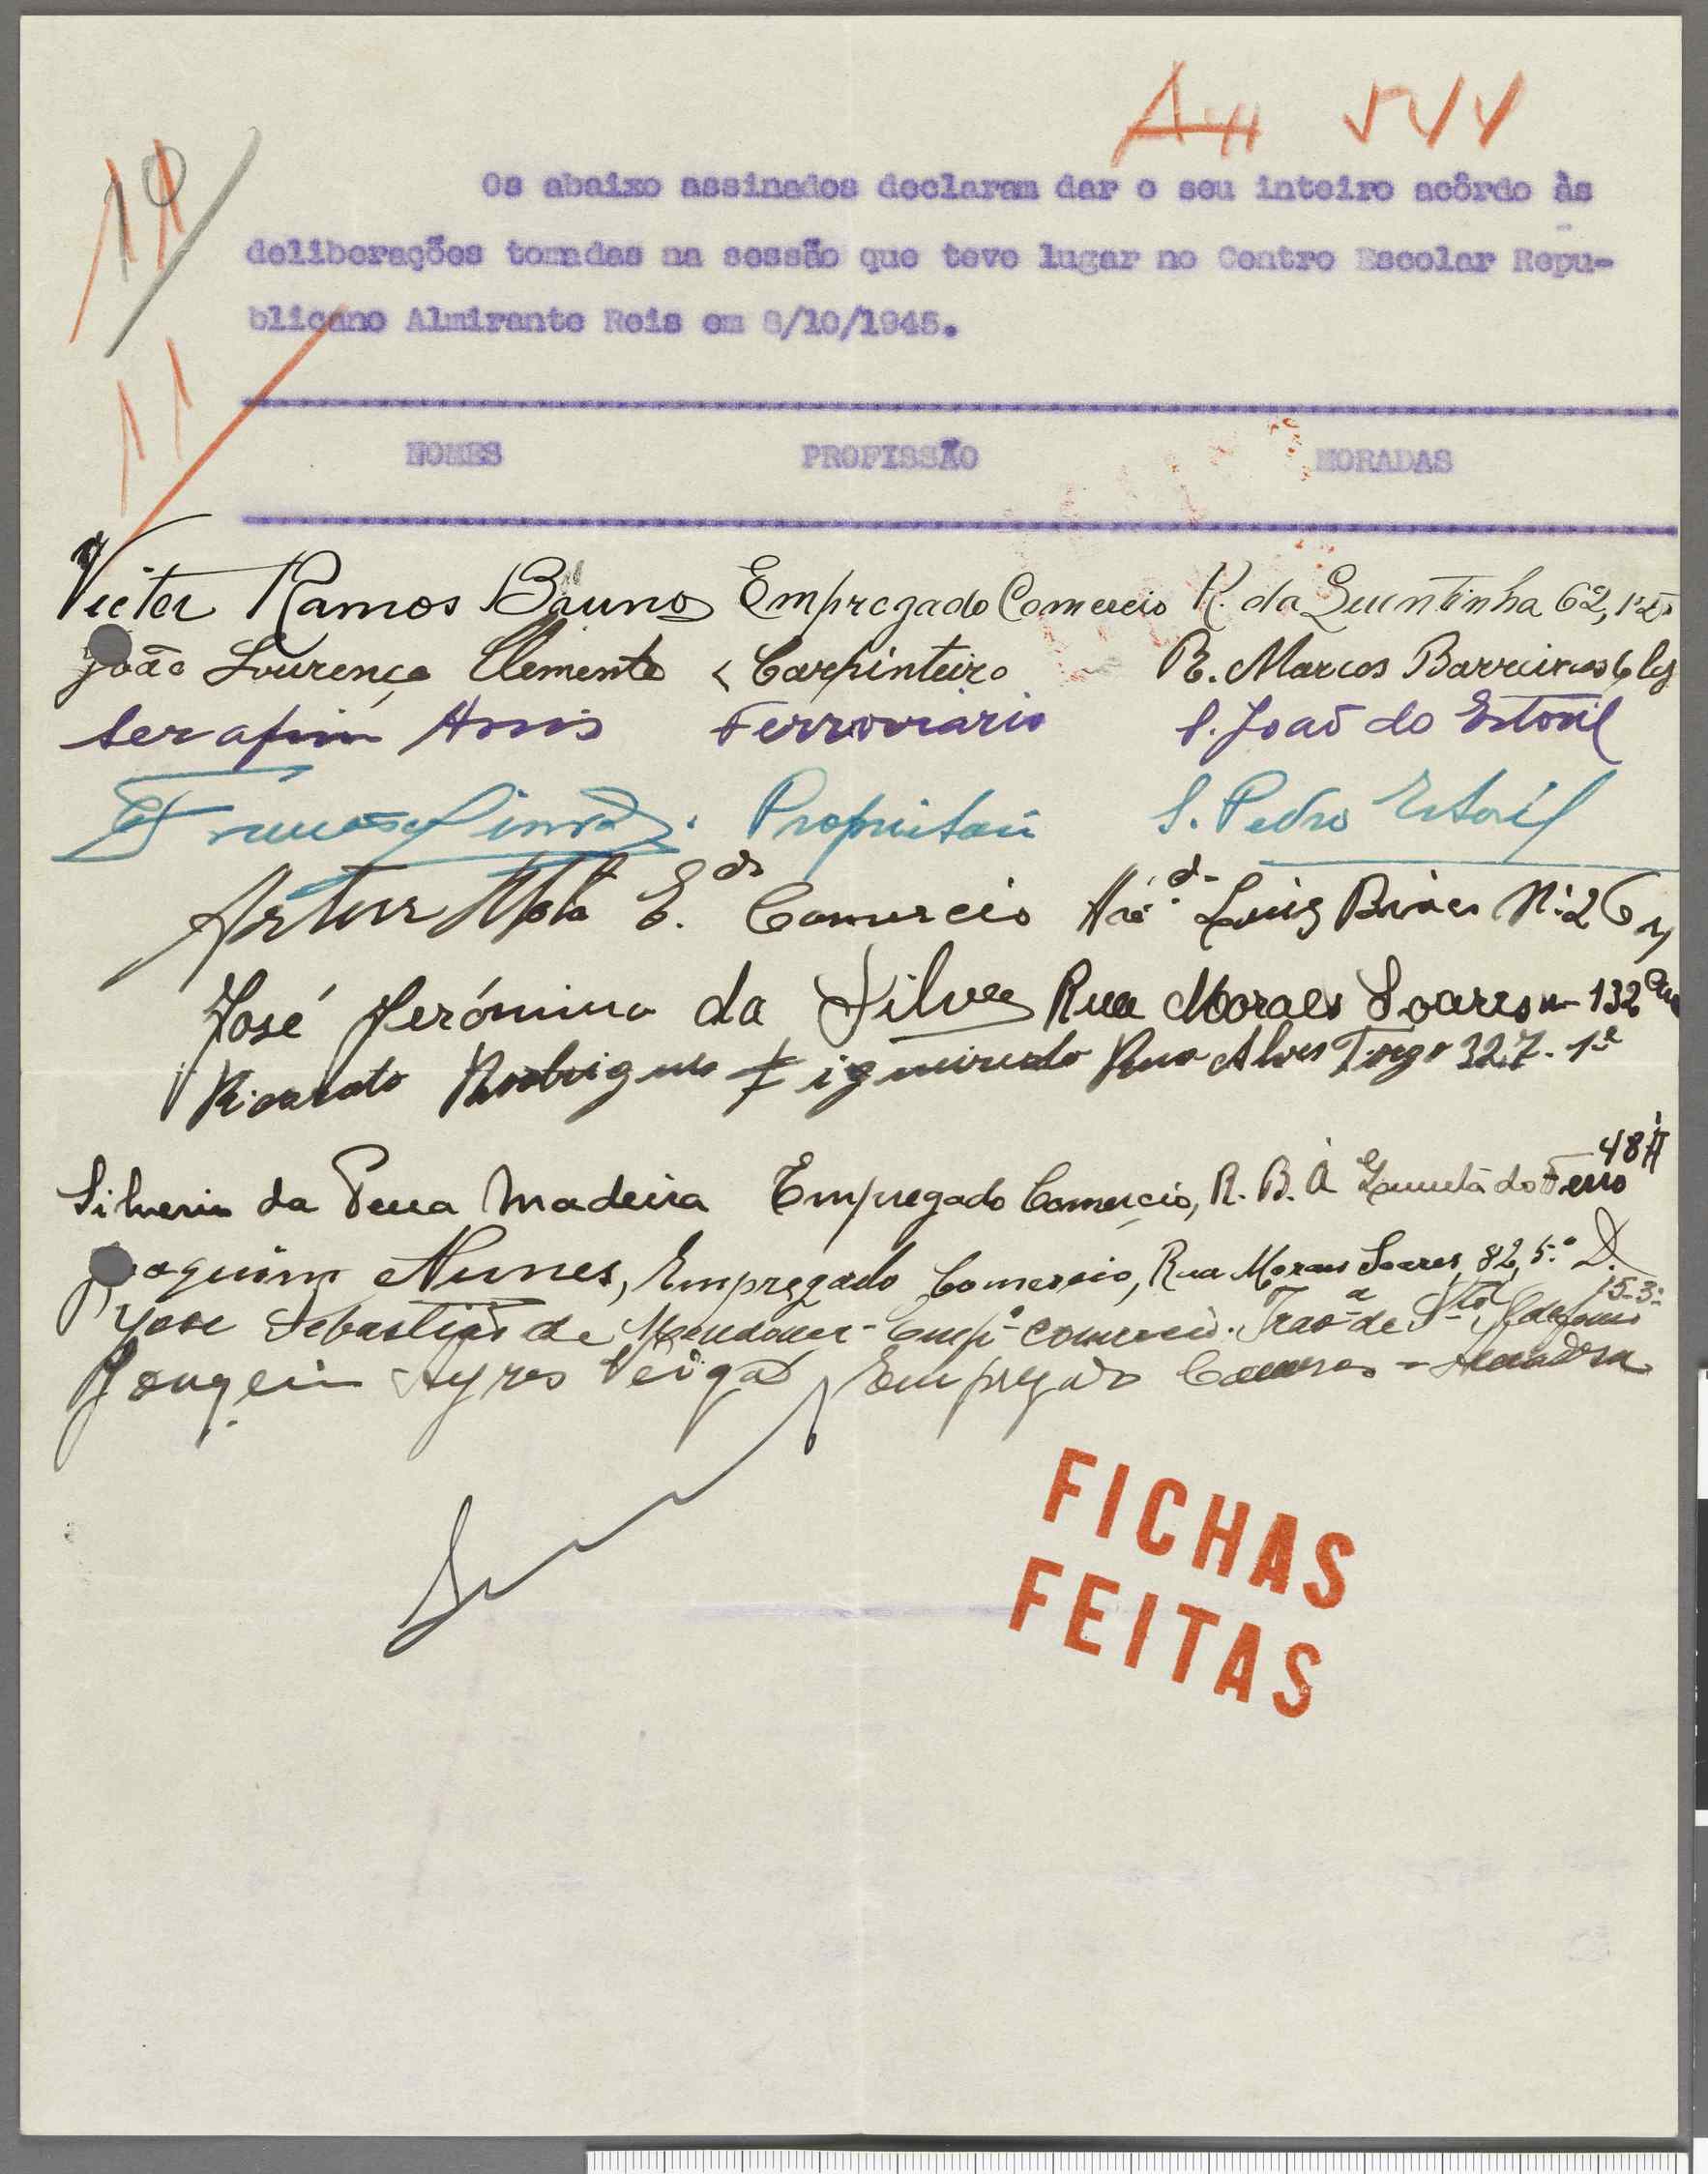 544
10
11
Os abaixo assinados declaram dar o seu inteiro acôrdo às
deliberações tomadas na sessão que teve lugar no Centro Escolar Repu-
blicano Almirante Reis em 8/10/1945.
11
NOMES PROFISSÃO MORADAS
Victor Ramos Bruno Empregado Comercio R. da Quintinha 62, 1º
João Lourenço Clemente Carpinteiro R. Marcos Barreiros 6
Serafim Assis Ferroviario S. João do Estoril
Proprietari S. Pedro Estoril
Artur Mota E. do Comercio Luiz Nº 26
José Jerónimo da Silva Rua Moraes Soares 132
Ricardo Rodrigues Figueiredo Rua Alves Torgo 327-1º
48 A
Silverio da Pena Madeira Empregado Comercio, R. B. À Quinta do Ferro
Joaquim Nunes, Empregado Comercio, Rua Moraes Soares, 82, 5.º D.
15-3º
José Sebastião de Mendonça - Empº comercio. Travª de Stº Ildefonso
Joaquim Ayres Veiga, Empregado - Amadora
FICHAS
FEITAS